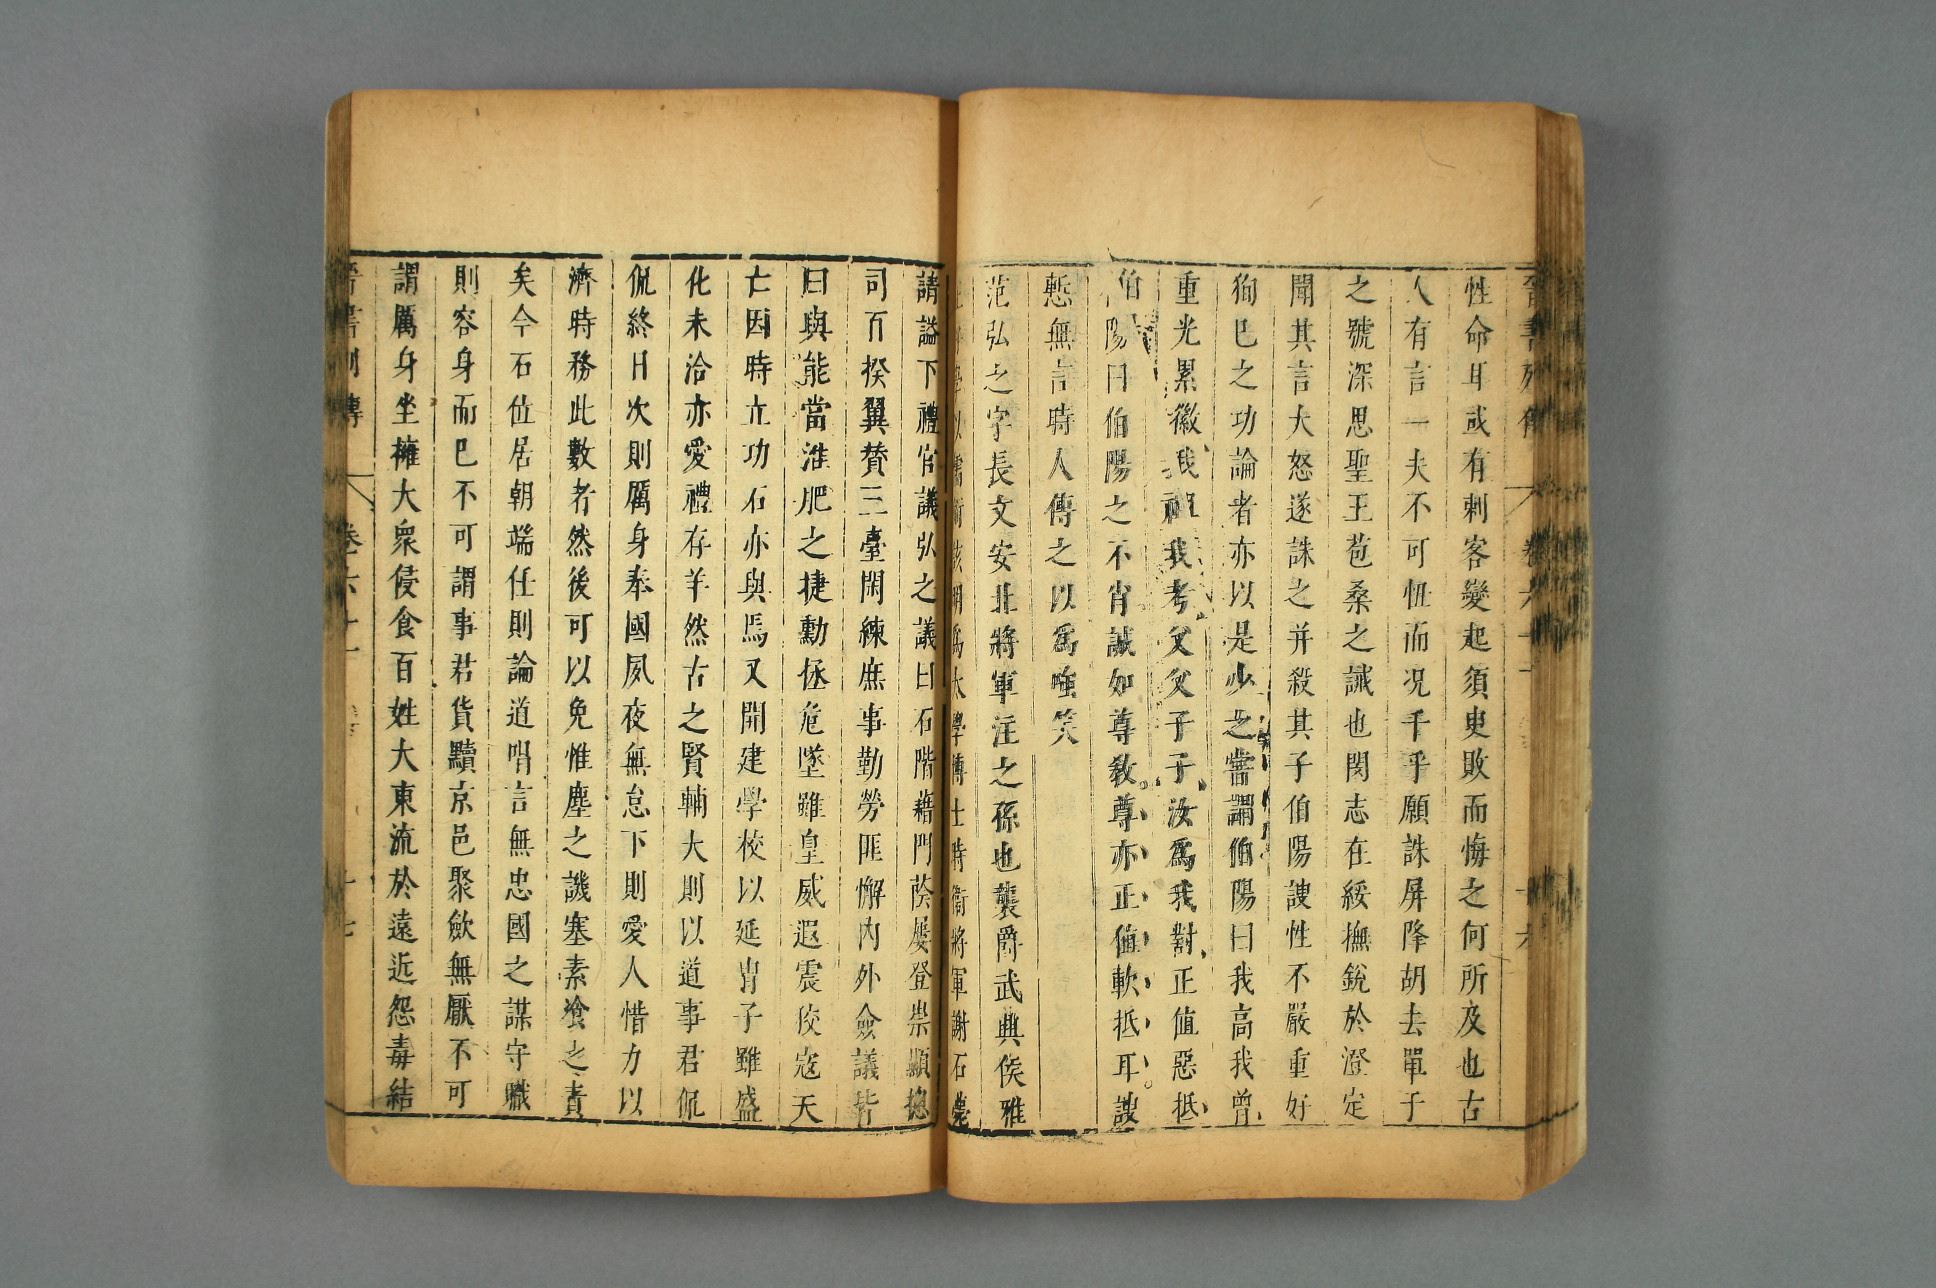 晉書列傳 卷六十一 十六
性命耳或有刺客變起須臾敗而悔之何所及也古
人有言一夫不可忸而况千乎願誅屏降胡去單于
之號深思聖王苞桑之誡也閔志在綏撫銳於澄定
聞其言大怒遂誅之并殺其子伯陽謏性不嚴重好
狥巳之功論者亦以是少之嘗謂伯陽曰我高我曾
重光累徽我祖我考父父子子汝爲我對正值惡抵
伯陽曰伯陽之不肖誠如尊敎尊亦正值軟抵耳謏
慙無言時人傳之以爲嗤笑
范弘之字長文安北將軍汪之孫也襲爵武興侯雅
以儒術該明爲太學博士時衛將軍謝石薨
請謚下禮官議弘之議曰石階藉門蔭屢登崇顯總
司百揆翼贊三臺閑練庶事勤勞匪懈内外僉議皆
曰與能當淮肥之捷勳拯危墜雖皇威遐震狡寇天
亡因時立功石亦與焉又開建學校以延胄子雖盛
化未洽亦愛禮存羊然古之賢輔大則以道事君侃
侃終日次則厲身奉國夙夜無怠下則愛人惜力以
濟時務此數者然後可以免惟塵之譏塞素飡之責
矣今石位居朝端任則論道唱言無忠國之謀守職
則容身而巳不可謂事君貨黷京邑聚歛無厭不可
謂厲身坐擁大衆侵食百姓大東流於遠近怨毒結
晉書列傳 卷六十一 十七